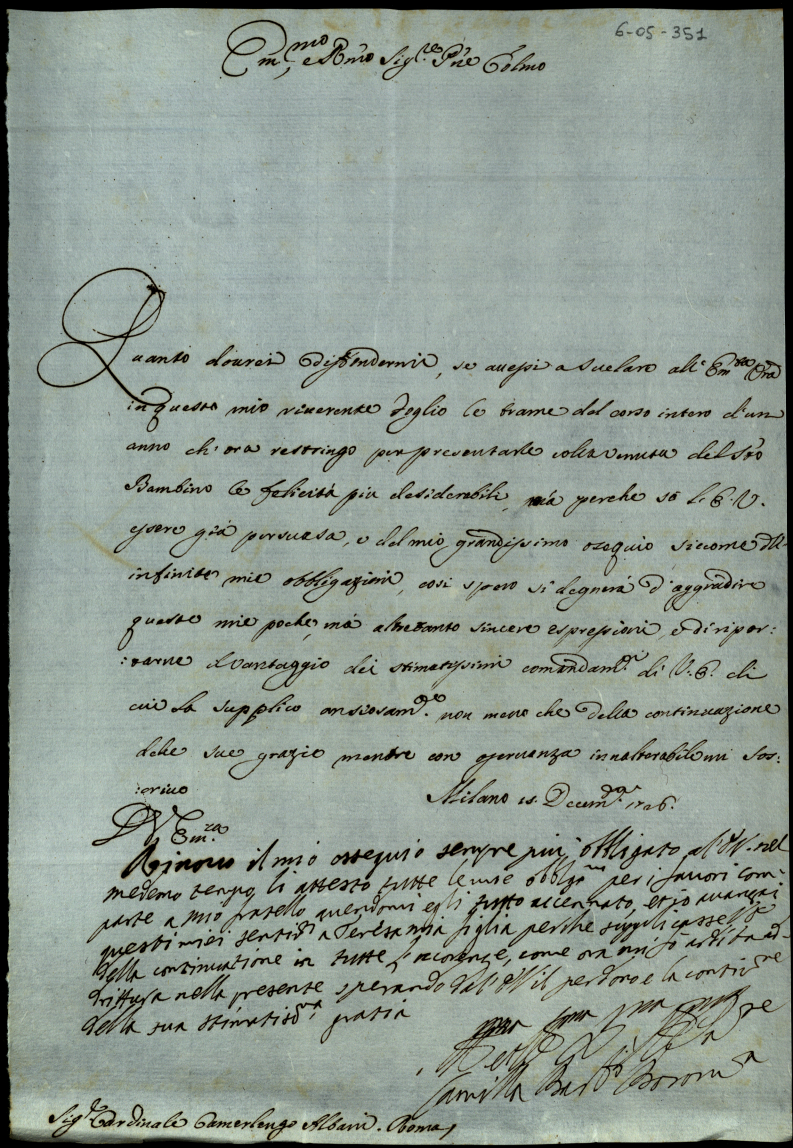 6-05-351
Em.mo e Rmo Sig.re Pne Colmo
Quanto dourei diffondermi, se auessi a suelare all' Em.za Vra
in questo mio riuerente foglio le trame del corso intero d'un
anno ch' ora restringo per presentarle colla venuta del Sto
Bambino le felicità più desiderabili, mà perche sò L.E.V.
essere già persuasa, e del mio grandissimo ossequio siccome dll-
infinite mie obbligazioni, così spero si degnerà d'aggradire
queste mie poche, mà altretanto sincere espressioni, e di ripor:
:tarne il vantaggio dei stimatissimi comandam.ti di V.E. di
cui La supplico ansiosam.te non meno che della continuazione
delle sue grazie mentre con osseruanza innalterabile mi sos:
:criuo Milano 15. Decem.re 1726.
D V Em.za
Rinouo il mio ossequio sempre piu obbligato al' EV. nel
medemo tempo li attesto tutte le mie obblig.ni per i fauori com-
parte a mio fratello auendomi egli tutto accennato, et io auanzai
questi miei sentim.ti a Teresa mia figlia perche suplicasse VE
della continuatione in tutte l'ocorenze, come ora mi fo ardita ad-
drittura nella presente sperando dal' EV il perdono e la contin.ne
della sua stimatis.ma gratia
Camilla Bar.o Borom.a
Sig.r Cardinale Camerlengo Albani. Roma